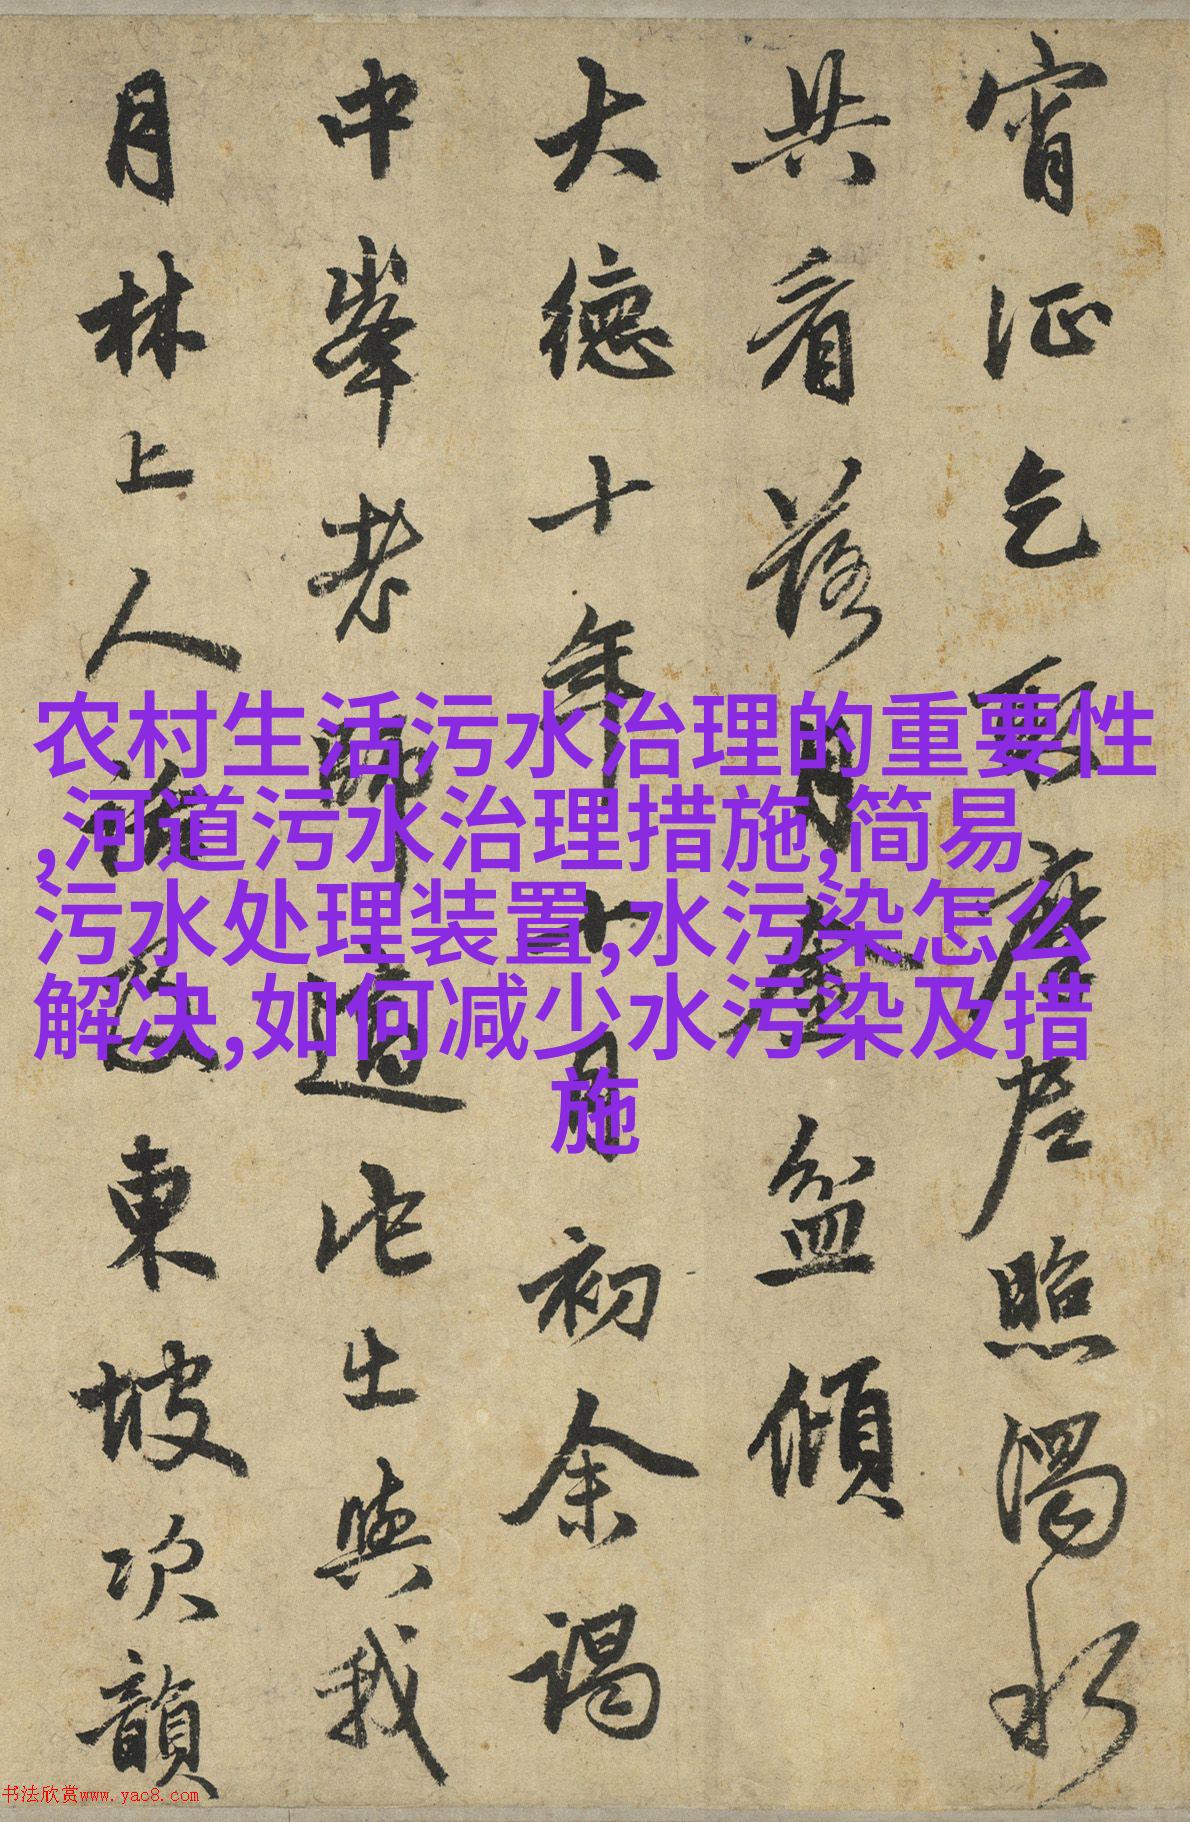 宵征乞取摩尼照濁水
共看落月金盆傾
大德十年八月初余謁
中峯老師適他出與我
月林上人及東坡次韻
农村生活污水治理的重要性
,河道污水治理措施,简易
污水处理装置,水污染怎么
解决,如何减少水污染及措
施
书法欣赏www.yac8.com